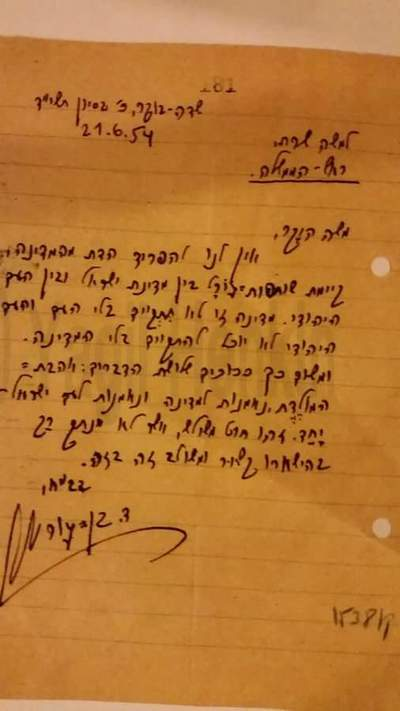 181
שדה-בוקר, כ' בסיון תשי"ד
21.6.54
למשה שרת,
ראש-הממשלה.
משה היקר,
אין לנו להפריד הדת מהמדינה,
קיימת שותפות-גורל בין מדינת ישראל ובין העם
היהודי. מדינה זו לא תתקיים בלי העם והעם
היהודי לא יוכל להתקיים בלי המדינה.
ומשום כך כרוכים שלושת הדברים: אהבת-
המולדת, נאמנות למדינה ונאמנות לעם ישראל-
יחד. זהו חוט משולש, אשר לא ינתק רק
בהישארו קשור ומשולב זה בזה.
ד. בן-גוריון